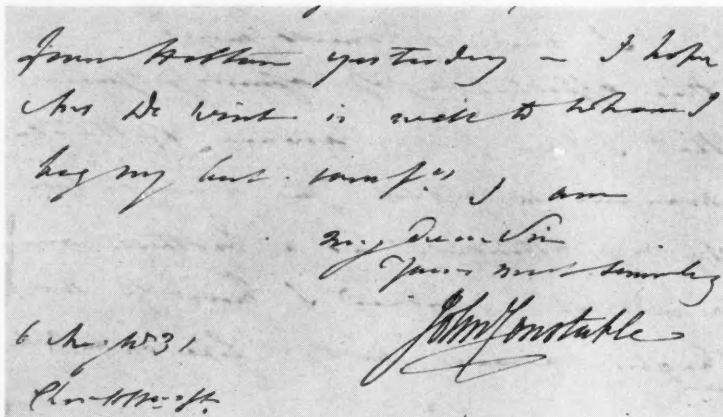 from Hatton yesterday – I hope
Mrs De Wint is well to whom I
beg my best comp.ts I am
my Dear Sir
Yours most sincerely
John Constable
6
Charlotte St.